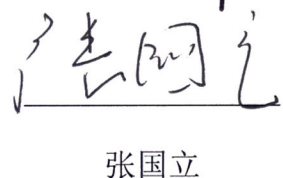 张国立
张国立